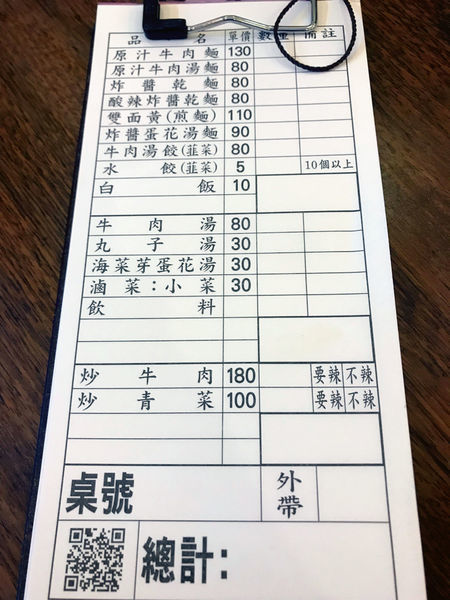 品名 單價 數量 備註
原汁牛肉麵 130
原汁牛肉湯麵 80
炸醬乾麵 80
酸辣炸醬乾麵 80
雙面黃(煎麵) 110
炸醬蛋花湯麵 90
牛肉湯餃(韮菜) 80
水餃(韮菜) 5 10個以上
白飯 10
牛肉湯 80
丸子湯 30
海菜芽蛋花湯 30
滷菜：小菜 30
飲料
炒牛肉 180 要辣 不辣
炒青菜 100 要辣 不辣
桌號 外帶
總計：